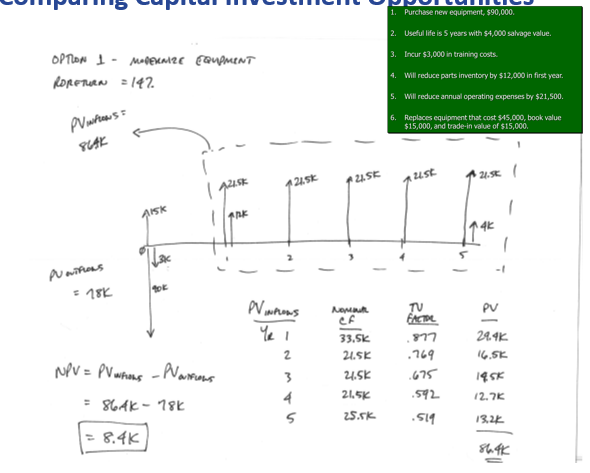 Comparing Capital Investment Opportunities
1. Purchase new equipment, $90,000.
2. Useful life is 5 years with $4,000 salvage value.
3. Incur $3,000 in training costs.
4. Will reduce parts inventory by $12,000 in first year.
5. Will reduce annual operating expenses by $21,500.
6. Replaces equipment that cost $45,000, book value
$15,000, and trade-in value of $15,000.
OPTION 1 - MODERNIZE EQUIPMENT
RORETURN = 14%
PV INFLOWS =
86.4K
21.5K 21.5K 21.5K 21.5K 21.5K
15K 12K 4K
0 1 2 3 4 5
3K
90K
PV OUTFLOWS
= 78K
PV INFLOWS NOMINAL CF TV FACTOR PV
YR 1 33.5K .877 29.4K
2 21.5K .769 16.5K
3 21.5K .675 14.5K
4 21.5K .592 12.7K
5 25.5K .519 13.2K
86.4K
NPV = PV INFLOWS - PV OUTFLOWS
= 86.4K - 78K
= 8.4K